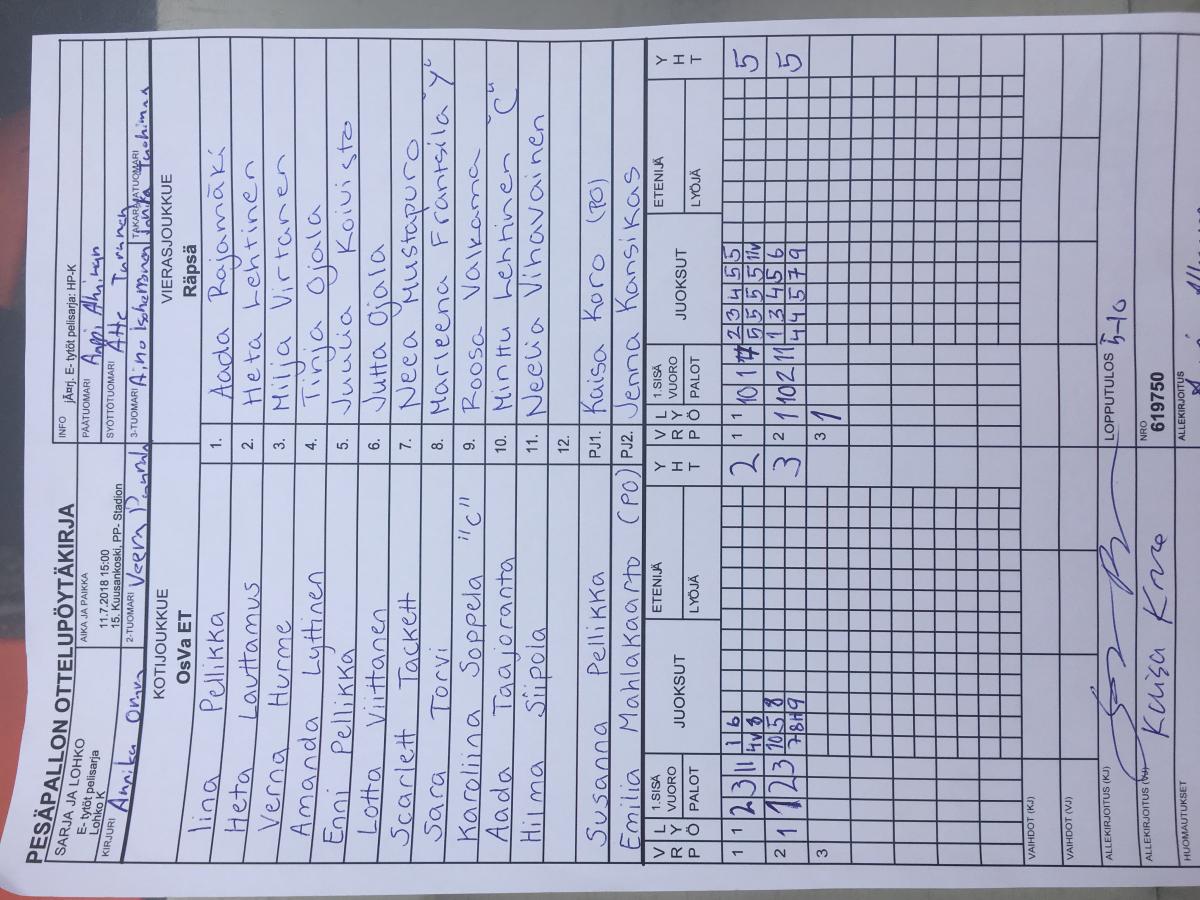 PESÄPALLON OTTELUPÖYTÄKIRJA
SARJA JA LOHKO
E- tytöt pelisarja
Lohko K
AIKA JA PAIKKA
11.7.2018 15:00
15. Kuusankoski, PP- Stadion
INFO jÃ¤rj. E- tytöt pelisarja: HP-K
PÄÄTUOMARI
SYÖTTÖTUOMARI Atte
KIRJURI Annika
2-TUOMARI Veera
3-TUOMARI Aino
TAKARAJATUOMARI
KOTIJOUKKUE
OsVa ET
VIERASJOUKKUE
Räpsä
Iina Pellikka 1. Aada Rajamäki
Heta Lauttamus 2. Heta Lehtinen
Verna Hurme 3. Milja Virtanen
Amanda Lyttinen 4. Tinja Ojala
Enni Pellikka 5. Juulia Koivisto
Lotta Viittanen 6. Jutta Ojala
Scarlett Tackett 7. Neea Mustapuro
Sara Torvi 8. Marleena Frantsila "Y"
Karoliina Soppela "C" 9. Roosa Valkama
Aada Taajoranta 10. Minttu Lehtinen "C"
Hilma Siipola 11. Neelia Vihavainen
12.
Susanna Pellikka PJ1. Kaisa Koro (PO)
Emilia Mahlakaarto (PO) PJ2. Jenna Kansikas
V R P L Y Ö 1.SISÄ VUORO PALOT JUOKSUT ETENIJÄ LYÖJÄ Y H T V R P L Y Ö 1.SISÄ VUORO PALOT JUOKSUT ETENIJÄ LYÖJÄ Y H T
1 1 2 3 11 1 6 2 1 1 10 1 2 3 4 5 5 5
4v 8 5 5 5 5 11v
2 1 1 2 3 10 5 8 3 2 1 10 2 11 1 3 4 5 6 5
7 8 11 9 4 4 5 7 9
3 3 1
VAIHDOT (KJ)
VAIHDOT (VJ)
ALLEKIRJOITUS (KJ)
LOPPUTULOS 5-10
ALLEKIRJOITUS (VJ) Kaisa
NRO
619750
HUOMAUTUKSET
ALLEKIRJOITUS